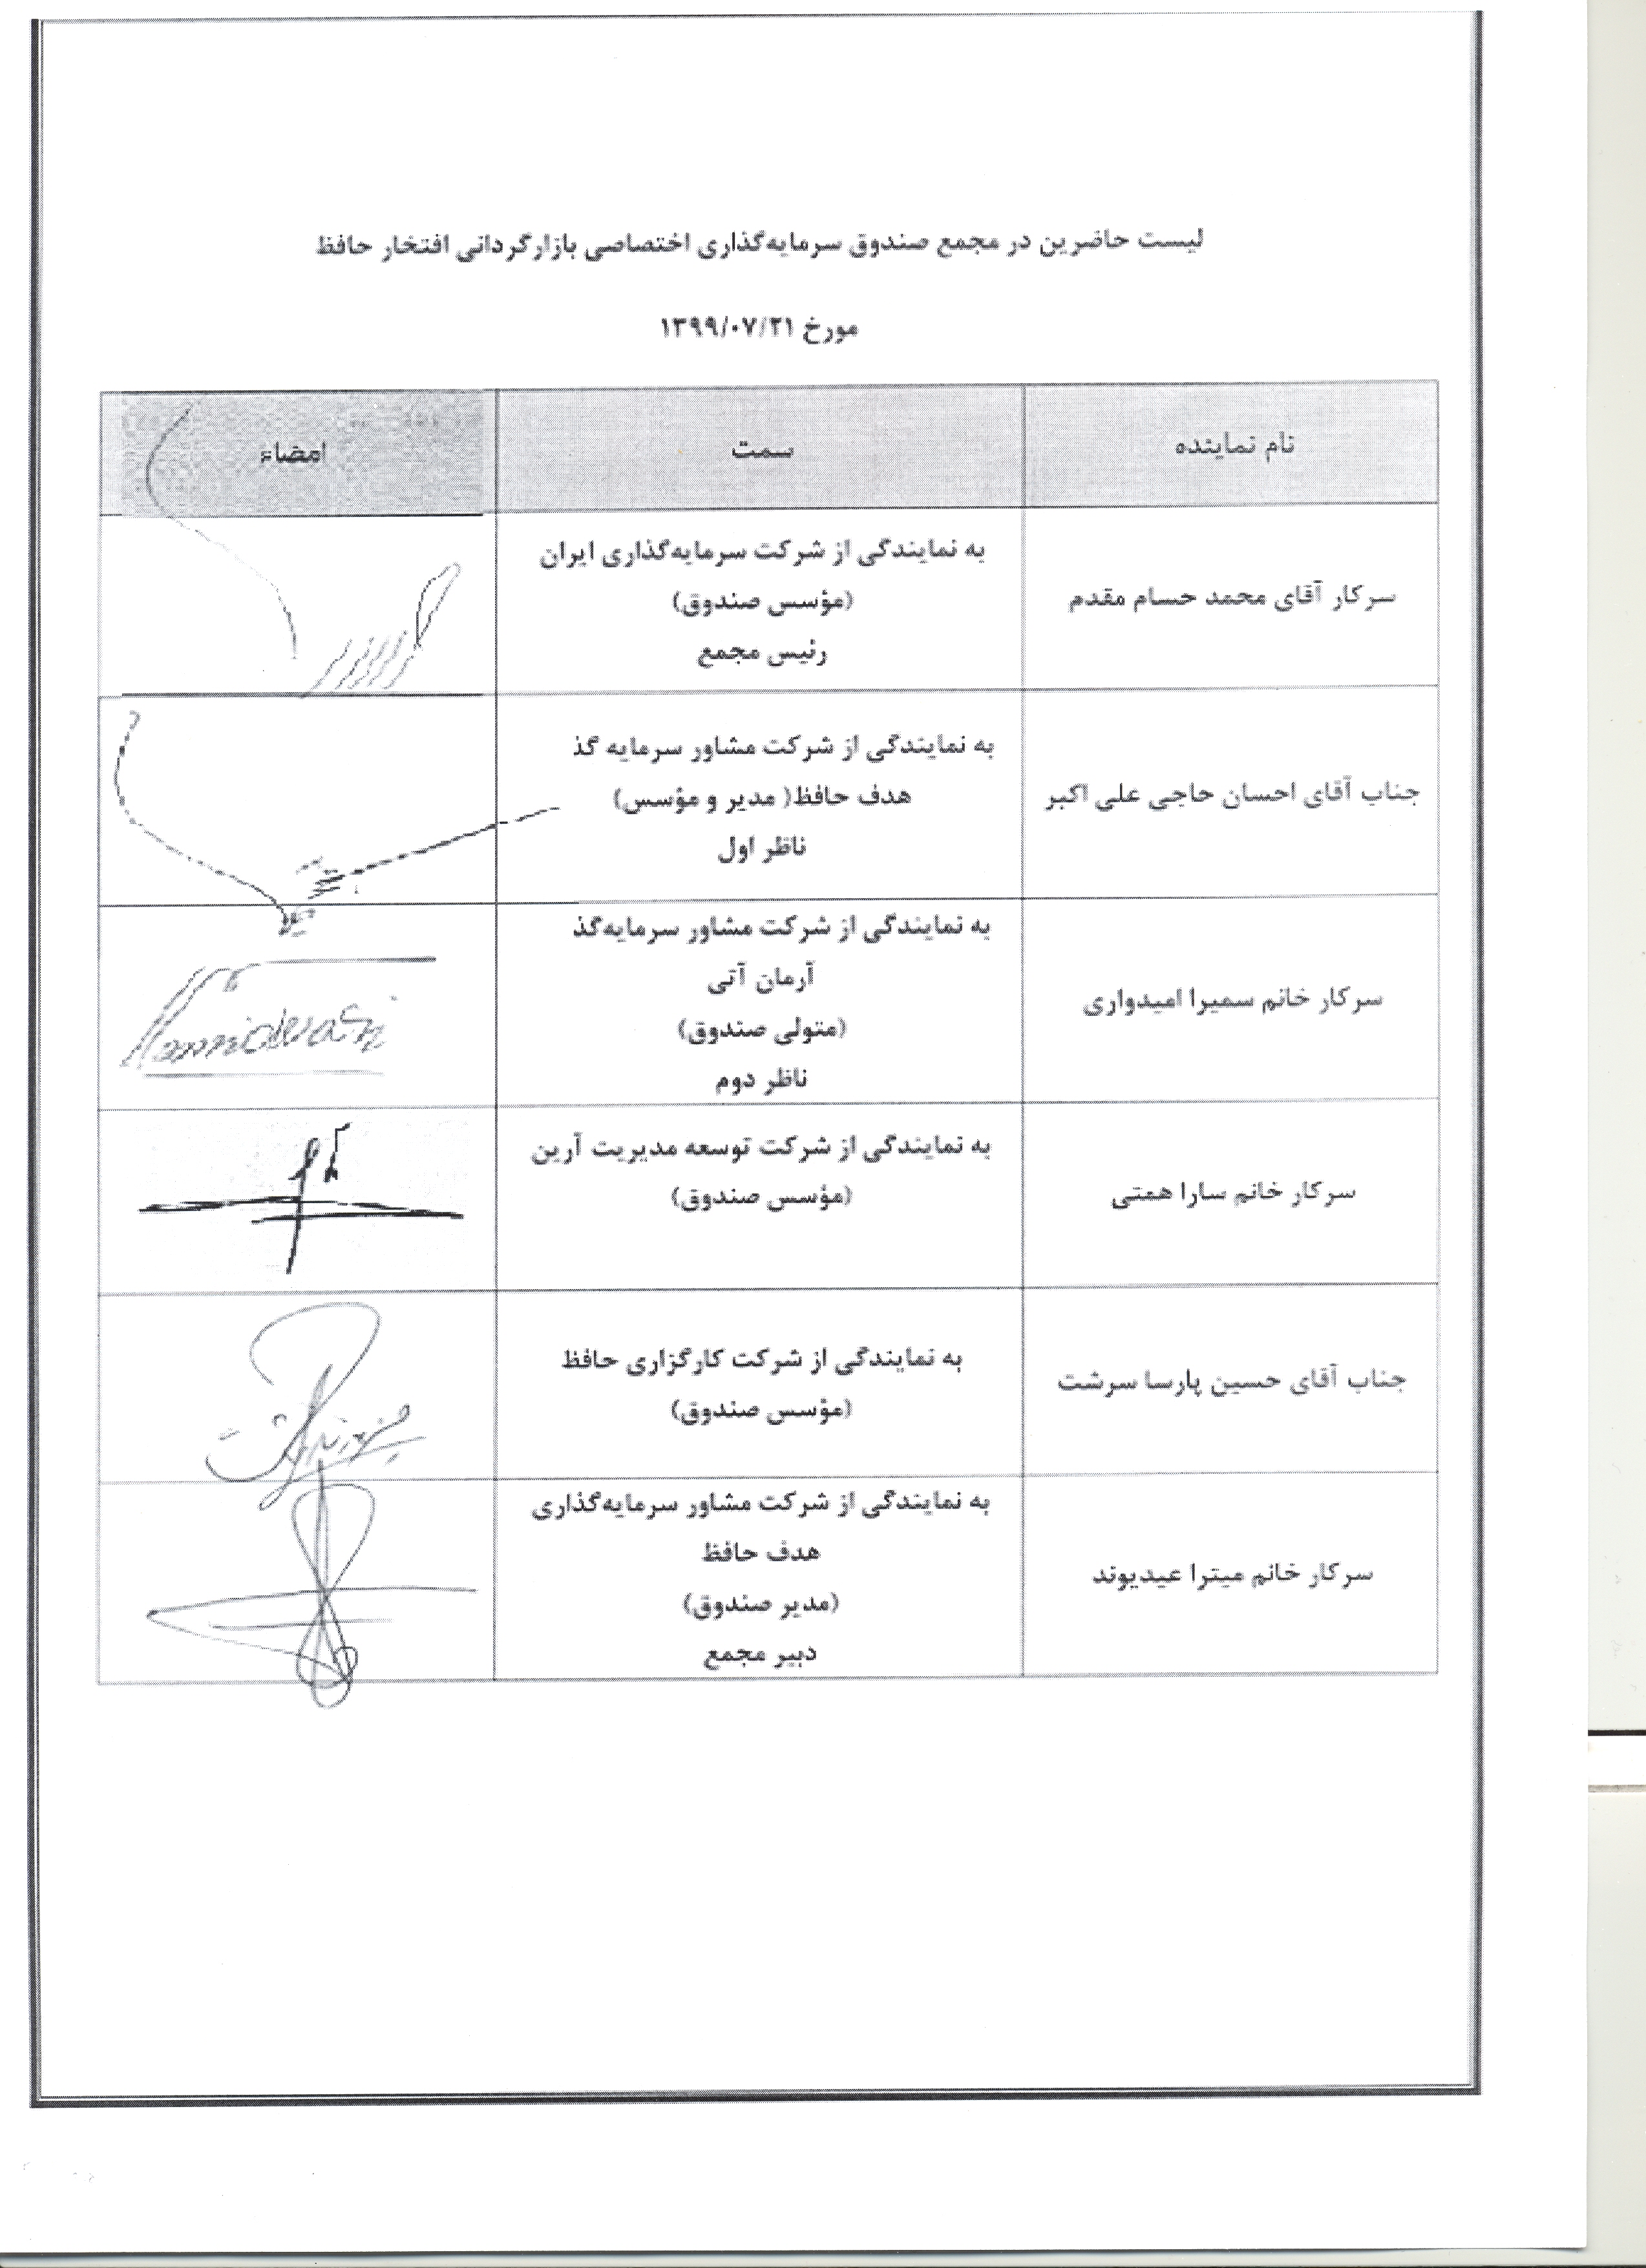 لیست حاضرین در مجمع صندوق سرمایه‌گذاری اختصاصی بازارگردانی افتخار حافظ
مورخ ۱۳۹۹/۰۷/۲۱
نام نماینده
سمت
امضاء
سرکار آقای محمد حسام مقدم
به نمایندگی از شرکت سرمایه‌گذاری ایران
(مؤسس صندوق)
رئیس مجمع
جناب آقای احسان حاجی علی اکبر
به نمایندگی از شرکت مشاور سرمایه گذ
هدف حافظ( مدیر و مؤسس)
ناظر اول
سرکار خانم سمیرا امیدواری
به نمایندگی از شرکت مشاور سرمایه‌گذ
آرمان آتی
(متولی صندوق)
ناظر دوم
سرکار خانم سارا همتی
به نمایندگی از شرکت توسعه مدیریت آرین
(مؤسس صندوق)
جناب آقای حسین پارسا سرشت
به نمایندگی از شرکت کارگزاری حافظ
(مؤسس صندوق)
سرکار خانم میترا عیدیوند
به نمایندگی از شرکت مشاور سرمایه‌گذاری
هدف حافظ
(مدیر صندوق)
دبیر مجمع